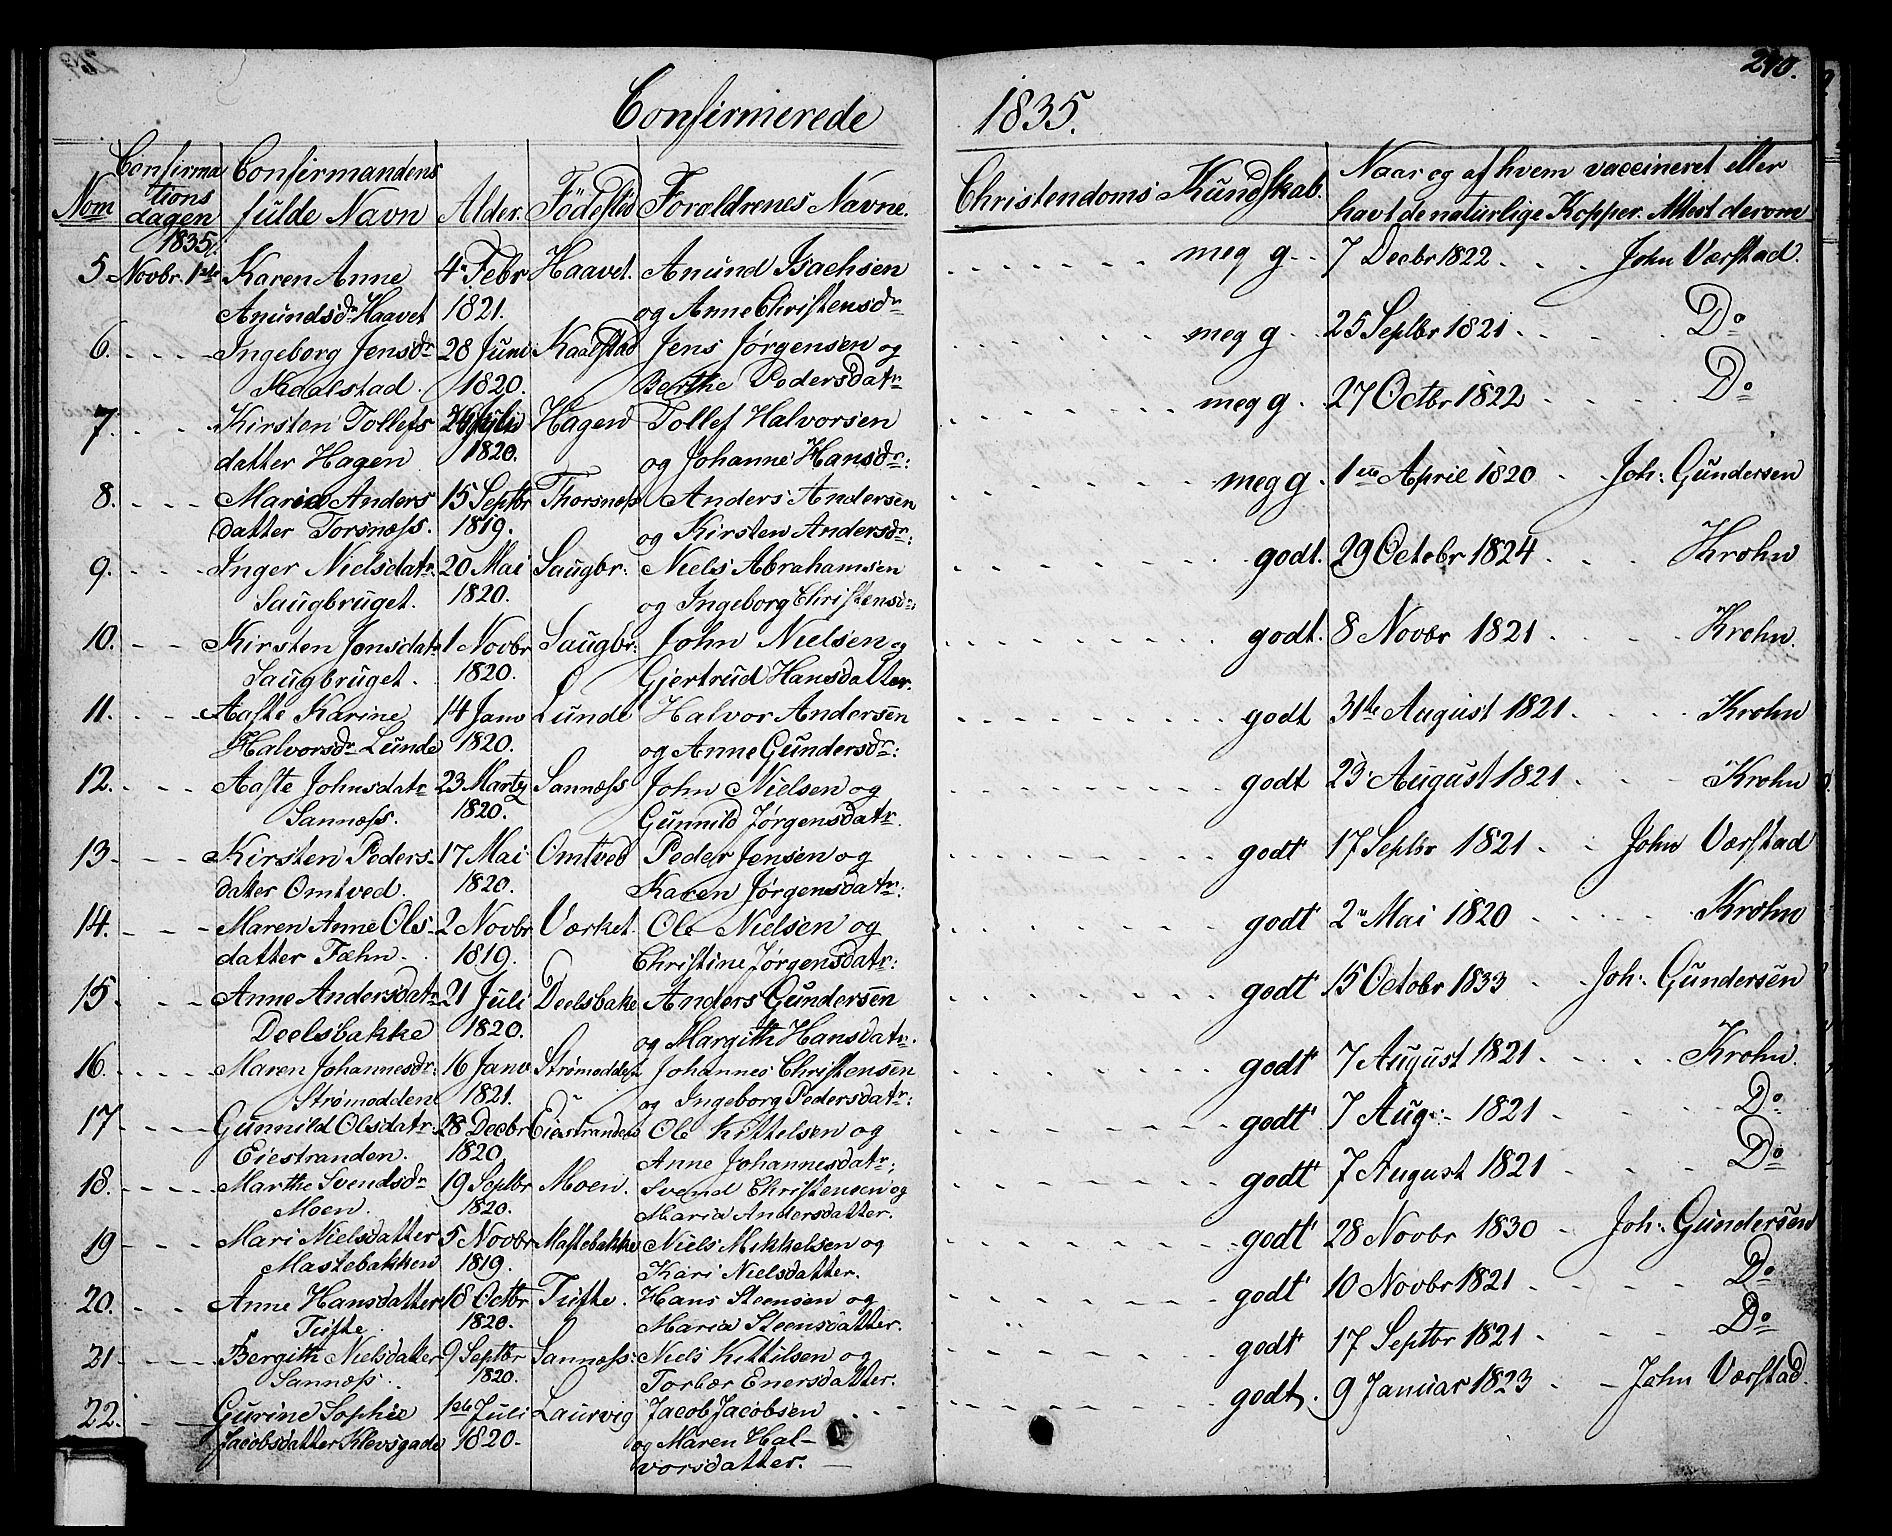 Confirmerede 1835. 240.
Nom Confirmationsdagen Confirmandens fulde Navn Alder. Födested Forældrenes Navne. Christendoms Kundskab. Naar og af hvem vaccineret eller havt de naturlige Kopper. Attest derom
1835.
5. Novbr. 1ste Karen Anne 4. Febr Haavet. Anund Isachsen meg g. 7 Decbr 1822 John Værstad.
Anundsdr Haavet 1821. og Anne Christensdr
6. Ingeborg Jensdr 28 Juni Kaalstad Jens Jørgensen og meg g. 25 Septbr 1821 Do
Kaalstad. 1820. Berthe Pedersdatr
7. Kirsten Tollefs Juli Hagen Tollef Halvorsen meg g. 27 Octbr 1822 Do
datter Hagen 1820. og Johanne Hansdr:
8. Maria Anders 15 Septbr Thorsness Anders Andersen meg g. 1ste April 1820 Joh: Gundersen
datter Torsness. 1819. og Kirsten Andersdr:
9. Inger Nielsdatr. 20 Mai Saugbr: Niels Abrahamsen godt. 29 Octobr 1824 Krohn
Saugbruget. 1820. og Ingeborg Christensdr:
10. Kirsten Jonsdatr 1 Novbr Saugbr: John Nielsen og godt. 8 Novbr 1821 Krohn.
Saugbruget. 1820. Gjertrud Hansdatter.
11. Aaste Karine 14 Janv Lunde Halvor Andersen godt 31te August 1821. Krohn
Halvorsdr Lunde 1820. og Anne Gundersdr:
12. Aaste Johnsdatr 23 Martz Sannæss John Nielsen og godt 23 August 1821 Krohn
Sannæss. 1820. Gunnild Jørgensdatr.
13. Kirsten Peders- 17 Mai Omtved Peder Jensen og godt 17 Septbr 1821 John Værstad
datter Omtved. 1820. Karen Jørgensdatr:
14. Maren Anne Ols- 2 Novbr Værket. Ole Nielsen og godt 2 Mai 1820 Krohn
datter Fæhn. 1819. Christine Jørgensdatr:
15. Anne Andersdatr 21 Juli Deelsbake Anders Gundersen godt 15 Octobr 1833 Joh: Gundersen
Deelsbakke 1820. og Margith Hansdatr.
16. Maren Johannesdr: 16 Janv Strømodden Johannes Christensen godt 7 August 1821. Krohn.
Strømodden 1821. og Ingeborg Pedersdatr:
17 Gunnild Olsdatr. 28 Decbr Eiestranden Ole Kittelsen og godt 7 Aug: 1821 Do
Eiestranden. 1820 Anne Johannesdatr:
18. Marthe Svendsdr 19 Septbr Moen. Svend Christensen og godt 7 August 1821 Do
Moen. 1820. Maria Andersdatter.
19 Mari Nielsdatter 5 Novbr Mastebakke Niels Mikkelsen og godt 28 Novbr 1830 Joh: Gundersen
Mastebakken 1819. Kari Nielsdatter.
20. Anne Hansdatter 18 Octbr Tufte. Hans Steensen og godt 10 Novbr 1821 Do
Tufte. 1820. Maria Steensdatter.
21 Bergith Nielsdatter 9 Septbr Sannæss: Niels Kittilsen og godt 17 Septbr 1821 Do
Sannæss. 1820. Torbær Enersdatter.
22. Gurine Sophie 1ste Juli Laurvig Jacob Jacobsen godt. 9 Januar 1823 John Værstad.
Jacobsdatter Klevsgade 1820. og Maren Hal-
vorsdatter.